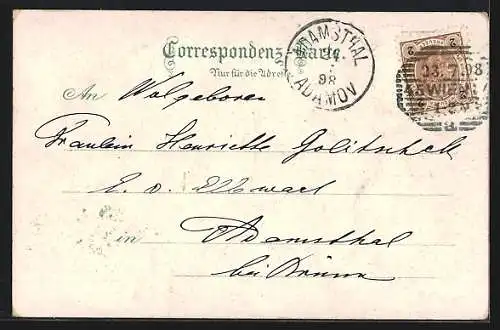 Correspondenz-Karte.
Nur für die Adresse.
ADAMSTHAL
98
ADAMOV
2 2
23.7.98
WIEN
An Wolgeboren
Fraulein Henriette Golitschek
E. v. Elswart
in Adamsthal
bei Brünn